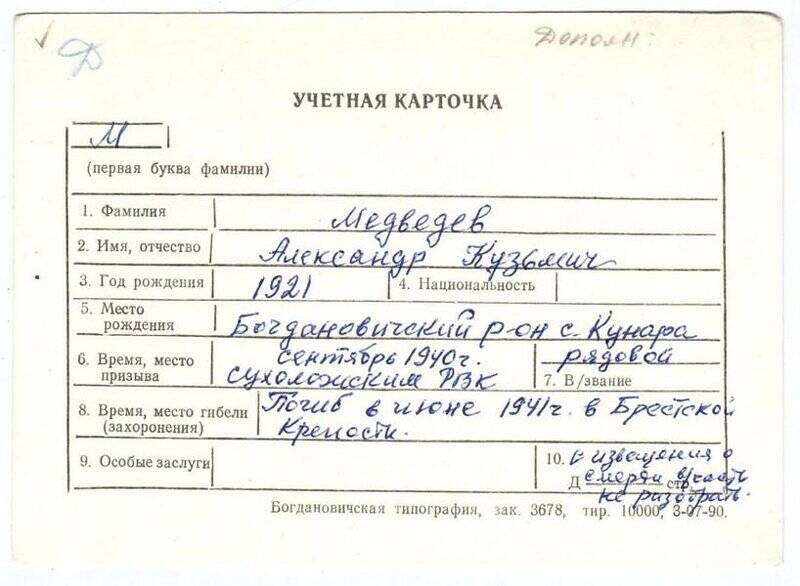 Д
Дополн.
УЧЕТНАЯ КАРТОЧКА
М
(первая буква фамилии)
1. Фамилия Медведев
2. Имя, отчество Александр Кузьмич
3. Год рождения 1921 4. Национальность
5. Место рождения Богдановичский р-он с. Кунара
6. Время, место призыва сентябрь 1940г. Сухоложским РВК
рядовой
7. В/звание
8. Время, место гибели (захоронения) Погиб в июне 1941г. в Брестской
Крепости.
9. Особые заслуги
10. с извещения о
Д смерти в/часть стр.
не разобрать.
Богдановичская типография, зак. 3678, тир. 10000, 3-07-90.